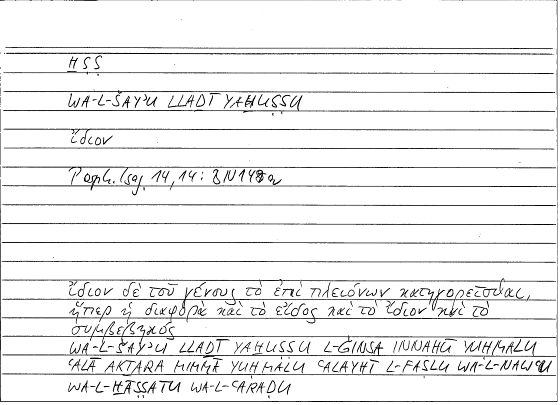 H̱ṢṢ
WA-L-ŠAYʾU LLAḎĪ YAH̱UṢṢU
ἴδιον
Porph. Isag. 14,14:
ἴδιον δὲ τοῦ γένους τὸ ἐπὶ πλειόνων κατηγορεῖσθαι,
ἤπερ ἡ διαφορὰ καὶ τὸ εἶδος καὶ τὸ ἴδιον καὶ τὸ
συμβεβηκός
WA-L-ŠAYʾU LLAḎĪ YAH̱UṢṢU L-ǦINSA INNAHŪ YUḤMALU
ʿALĀ AKṮARA MIMMĀ YUḤMALU ʿALAYHI L-FAṢLU WA-L-NAWʿU
WA-L-H̱ĀṢṢATU WA-L-ʿARAḌU